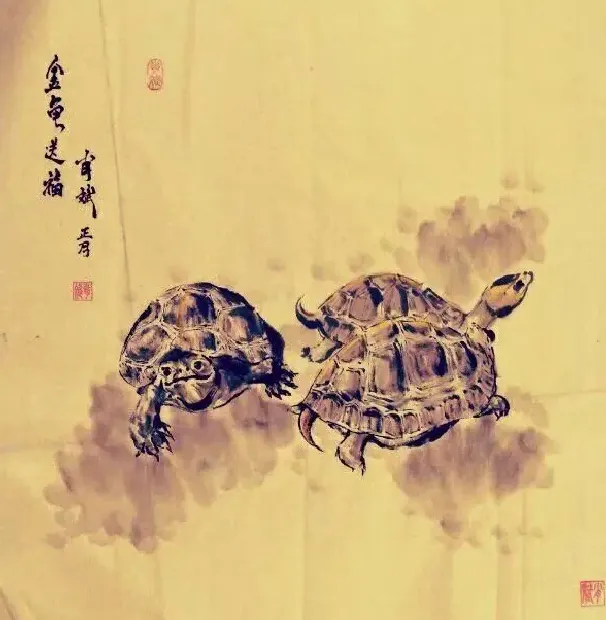 金龟送福
肖斌 正月